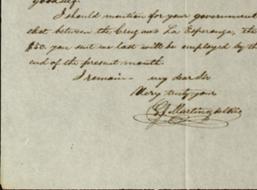 I should mention for your government
that between the Cruz and La Esperanza, the
$50. you sent me last will be employed by the
end of the present month.
I remain - my dear Sir
Very truly yours